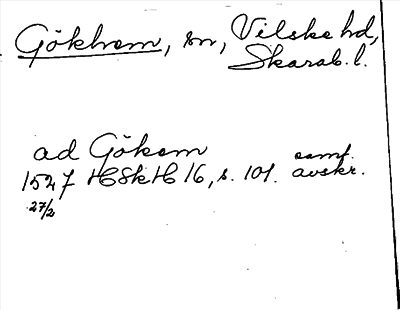 Gökhem, sn, Vilske hd,
Skarab. l.
ad Gökem
1527 HSkH 16, s. 101. samt. avskr.
27/2